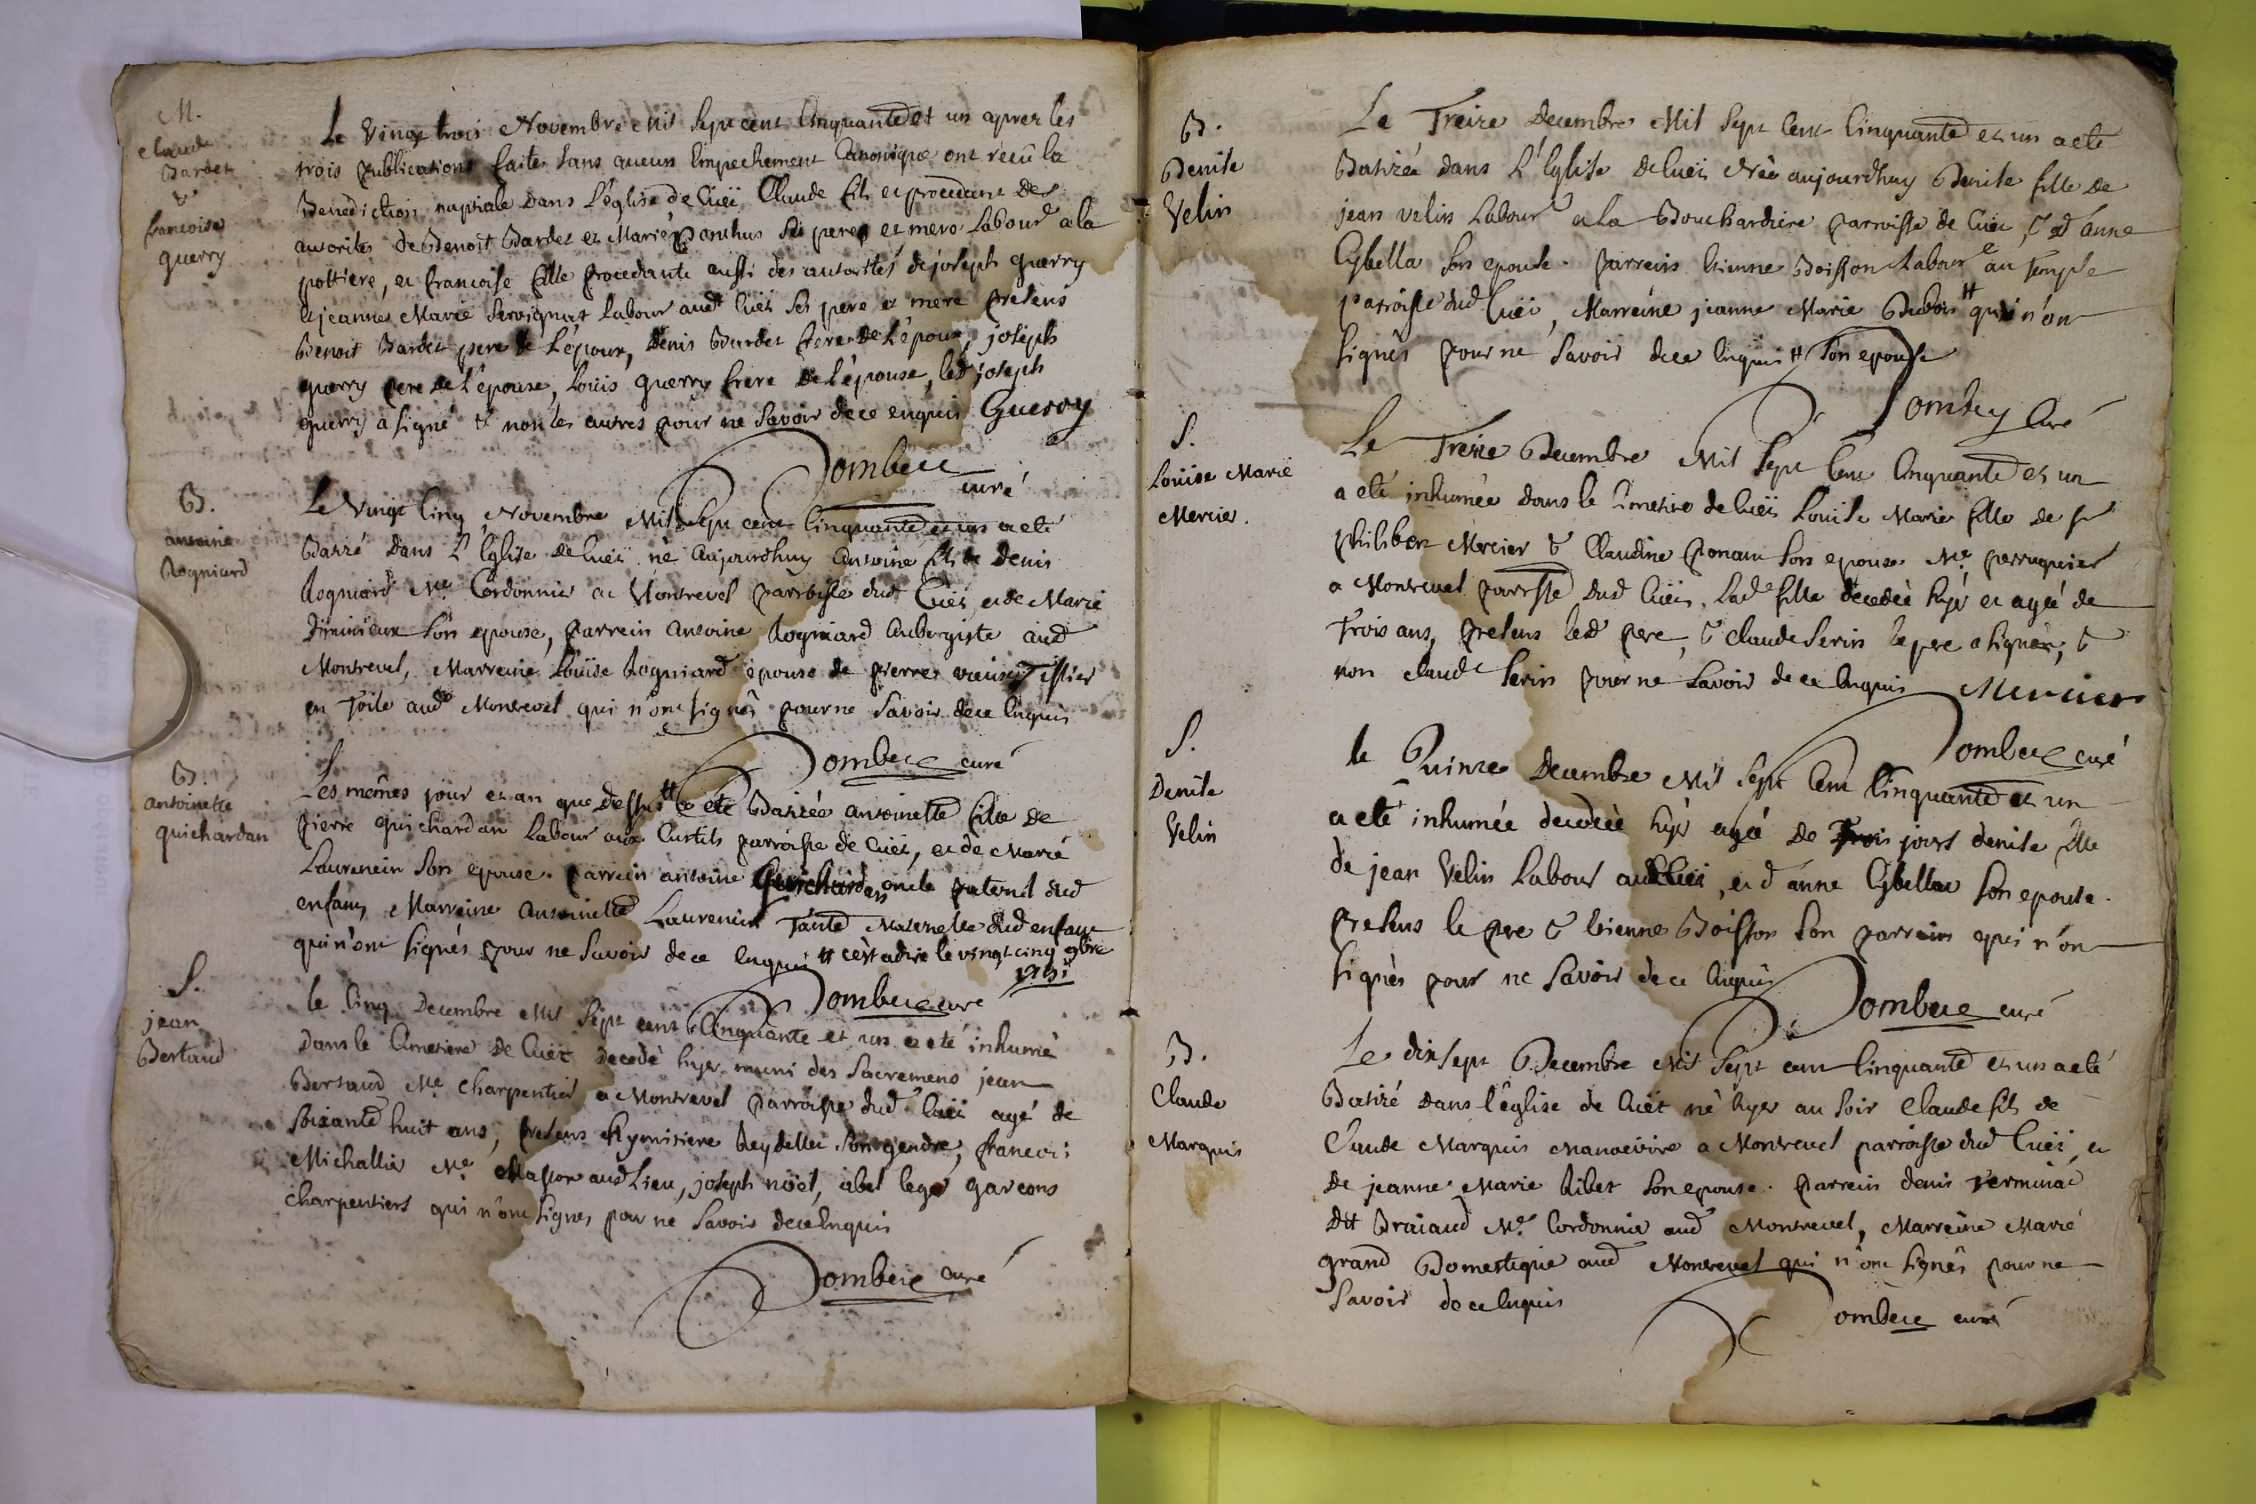 M.
Claude
Bardet
&
francoise
guerry
Le vingt trois Novembre mil sept cent cinquante et un apres les
trois publications faites sans aucun empechement Canonique ont recû la
Benediction nuptiale dans L'église de Cuët Claude fils et procedant des
autorités de Benoit Bardet et Marie Ponthus ses pere et mere Labour a la
pottiere, et francoise fille procedante aussi des autorités de joseph guerry
et jeanne Marie Servignat labour audt Cuët ses pere et mere presens
Benoit Bardet pere de L'époux, Denis Bardet frere de L'époux, joseph
guerry pere de L'épouse, Louis guerry frere de L'épouse, led joseph
guerry a signé & non les autres pour ne savoir de ce enquis Guerry
Dombeÿ
curé
B.
antoine
Rogniard
Le vingt cinq Novembre Mil sept cent cinquante et un a eté
Batizé dans L'Eglise de Cuët né aujourdhuy antoine fils de Denis
Rogniard Me Cordonnier a Montrevel parroisse dudt Cuët et de Marie
son epouse, parrein antoine Rogniard aubergiste aud
Montrevel, Marreine Loüise Rogniard épouse de pierre tissier
en Toile audt Montrevel qui n'ont signés pour ne savoir de ce enquis
Dombeÿ curé
B.
antoinette
guichardan
Les mêmes jour et an que dessus # a eté Batizée antoinette fille de
pierre guichardan labour aux Curtils parroisse de Cuët, et de Marie
Laurencin son epouse. parrein antoine Guichardan oncle paternel dud
enfant, Marreine antoinette Laurencin Tante Maternelle dud enfant
qui n'ont signés pour ne savoir de ce enquis # c'est adire le vingt cinq 9bre
1751
Dombeÿ curé
S.
jean
Bertaud
le cinq Decembre mil sept cent Cinquante et un a eté inhumé
dans le Cimetiere de Cuët decedé hyer muni des Sacremens jean
Bertaud Me Charpentier a Montrevel parroisse dud Cuët agé de
soixante huit ans, presens son gendre, francois
Michallia Me Masson aud Lieu, joseph noël, abel leger garcons
charpentiers qui n'ont signés pour ne savoir de ce enquis
Dombeÿ curé
B.
Denise
Velin
Le Treize Decembre Mil Sept Cent Cinquante et un a eté
Batizée dans L'Eglise de Cuët Née aujourdhuy Denise fille de
jean velin Labour a la Bouchardiere parroisse de Cuët, & d'anne
Cybella son epouse. parrein Etienne Boisson Labour au Temple
parroisse dud Cuët, Marreine jeanne Marie Dubois # qui n'on
signés pour ne savoir de ce enquis # son epouse
Dombey Curé
S.
Loüise Marie
Mercier.
Le Treize Decembre Mil Sept Cent Cinquante et un
a eté inhumée dans le Cimetiere de Cuët Louise Marie fille de sr
philibert Mercier & Claudine Ponam son epouse Me perruquier
a Montrevel parroisse dud Cuët. Lade fille decedée hyer et agée de
Trois ans, presens led pere, & claude Serin le pere a signer, &
non claude Serin pour ne savoir de ce enquis Mercier
Dombeÿ curé
S.
Denise
Velin
le Quinze Decembre Mil Sept Cent Cinquante et un
a eté inhumée decedée hyer agée de Trois jours denise fille
de jean Velin Labour aud Cuët, et d'anne Cybella son epouse.
presens le pere & Etienne Boisson son parrein qui n'on
signés pour ne savoir de ce enquis
Dombeÿ curé
B.
Claude
Marquis
Le dix sept Decembre Mil Sept cent Cinquante et un a eté
Batizé dans l'église de Cuët né hyer au soir Claude fils de
Claude Marquis Manoeuvre a Montrevel parroisse dud Cuët, et
de jeanne Marie Ribet son epouse. parrein denis
dit Braiaud Me Cordonnier aud Montrevel, Marreine Marie
grand Domestique aud Montrevel qui n'ont signés pour ne
savoir de ce enquis
Dombeÿ curé